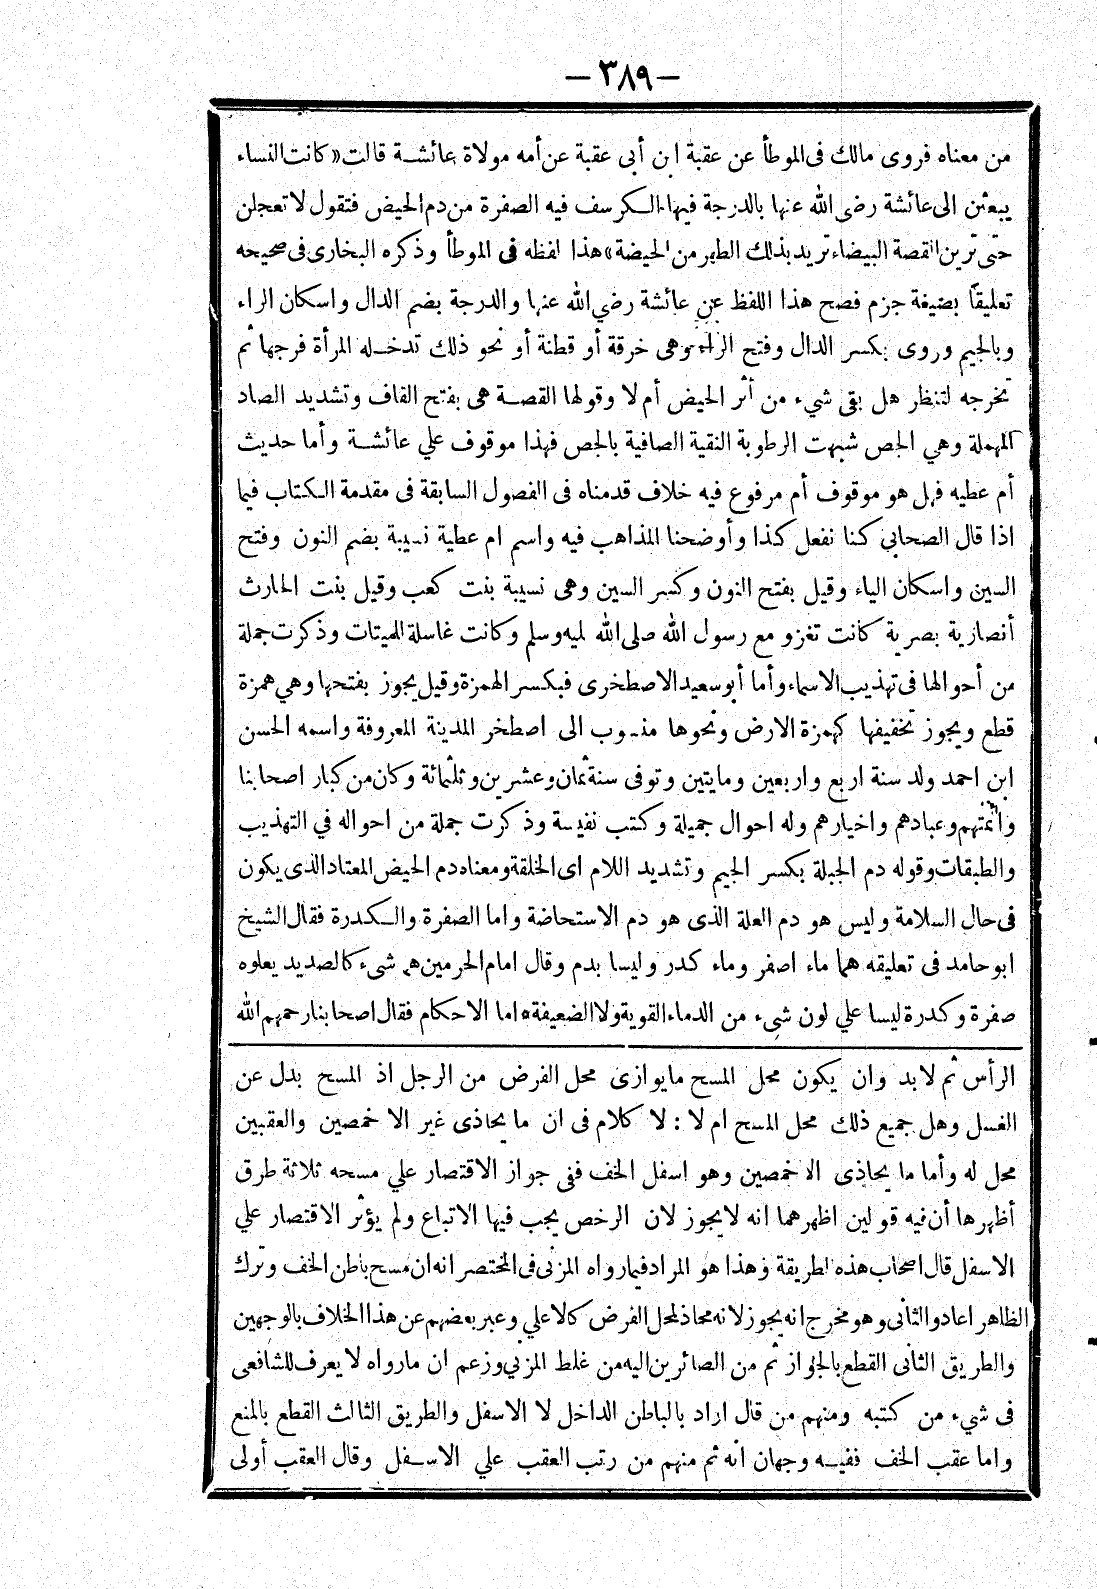 — ٣٨٩ —
من معناه فروى مالك فى الموطأ عن عقبة ابن أبى عقبة عن أمه مولاة عائشة قالت «كانت النساء
يبعثن الى عائشة رضى الله عنها بالدرجة فيها الكرسف فيه الصفرة من دم الحيض فتقول لا تعجلن
حتى ترين القصة البيضاء تريد بذلك الطهر من الحيضة» هذا لفظه فى الموطأ وذكره البخارى فى صحيحه
تعليقا بصيغة جزم فصح هذا اللفظ عن عائشة رضي الله عنها والدرجة بضم الدال واسكان الراء
وبالجيم وروى بكسر الدال وفتح الراء وهى خرقة أو قطنة أو نحو ذلك تدخله المرأة فرجها ثم
تخرجه لتنظر هل بقى شيء من أثر الحيض أم لا وقولها القصة هى بفتح القاف وتشديد الصاد
المهملة وهي الجص شبهت الرطوبة النقية الصافية بالجص فهذا موقوف علي عائشة وأما حديث
أم عطيه فهل هو موقوف أم مرفوع فيه خلاف قدمناه فى الفصول السابقة فى مقدمة الكتاب فيما
اذا قال الصحابي كنا نفعل كذا وأوضحنا المذاهب فيه واسم ام عطية نسيبة بضم النون وفتح
السين واسكان الياء وقيل بفتح النون وكسر السين وهى نسيبة بنت كعب وقيل بنت الحارث
أنصارية بصرية كانت تغزو مع رسول الله صلى الله عليه وسلم وكانت غاسلة للميتات وذكرت جملة
من أحوالها فى تهذيب الاسماء وأما أبو سعيد الاصطخرى فبكسر الهمزة وقيل يجوز بفتحها وهي همزة
قطع ويجوز تخفيفها كهمزة الارض ونحوها منسوب الى اصطخر المدينة المعروفة واسمه الحسن
ابن احمد ولد سنة اربع واربعين ومايتين وتوفى سنة ثمان وعشرين وثلثمائة وكان من كبار اصحابنا
وأئمتهم وعبادهم واخيارهم وله احوال جميلة وكتب نفيسة وذكرت جملة من احواله في التهذيب
والطبقات وقوله دم الجبلة بكسر الجيم وتشديد اللام اى الخلقة ومعناه دم الحيض المعتاد الذى يكون
فى حال السلامة وليس هو دم العلة الذى هو دم الاستحاضة واما الصفرة والكدرة فقال الشيخ
ابو حامد فى تعليقه هما ماء اصفر وماء كدر وليسا بدم وقال امام الحرمين هو شىء كالصديد يعلوه
صفرة وكدرة ليسا علي لون شىء من الدماء القوية ولا الضعيفة* اما الاحكام فقال اصحابنا رحمهم الله
الرأس ثم لا بد وان يكون محل المسح ما يوازى محل الفرض من الرجل اذ المسح بدل عن
الغسل وهل جميع ذلك محل المسح ام لا : لا كلام فى ان ما يحاذى غير الاخمصين والعقبين
محل له وأما ما يحاذى الاخمصين وهو اسفل الخف ففى جواز الاقتصار علي مسحه ثلاثة طرق
أظهرها أن فيه قولين اظهرهما انه لا يجوز لان الرخص يجب فيها الاتباع ولم يؤثر الاقتصار علي
الاسفل قال اصحاب هذه الطريقة وهذا هو المراد فيما رواه المزنى فى المختصر انه ان مسح باطن الخف وترك
الظاهر اعاد والثانى وهو مخرج انه يجوز لانه محاذ لمحل الفرض كالاعلي وعبر بعضهم عن هذا الخلاف بالوجهين
والطريق الثانى القطع بالجواز ثم من الصائرين اليه من غلط المزني وزعم ان مارواه لا يعرف للشافعى
فى شيء من كتبه ومنهم من قال اراد بالباطن الداخل لا الاسفل والطريق الثالث القطع بالمنع
واما عقب الخف ففيه وجهان انه ثم منهم من رتب العقب علي الاسفل وقال العقب أولى